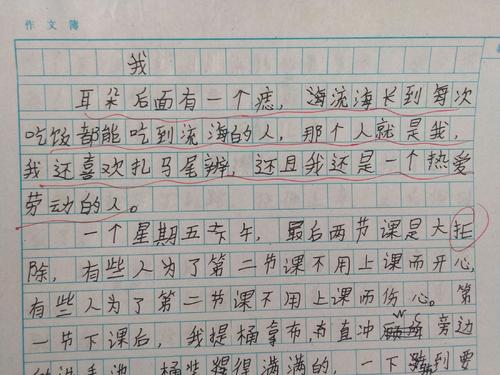 作文簿
我
耳朵后面有一个痣，海流海长到每次
吃饭都能吃到流海的人，那个人就是我，
我还喜欢扎马尾辫，还且我还是一个热爱
劳动的人。
一个星期五下午，最后两节课是大扫
除，有些人为了第二节课不用上课而开心，
有些人为了第二节课不用上课而伤心。第
一节下课后，我提桶拿布，直冲旁边
满满的，一下跳到要